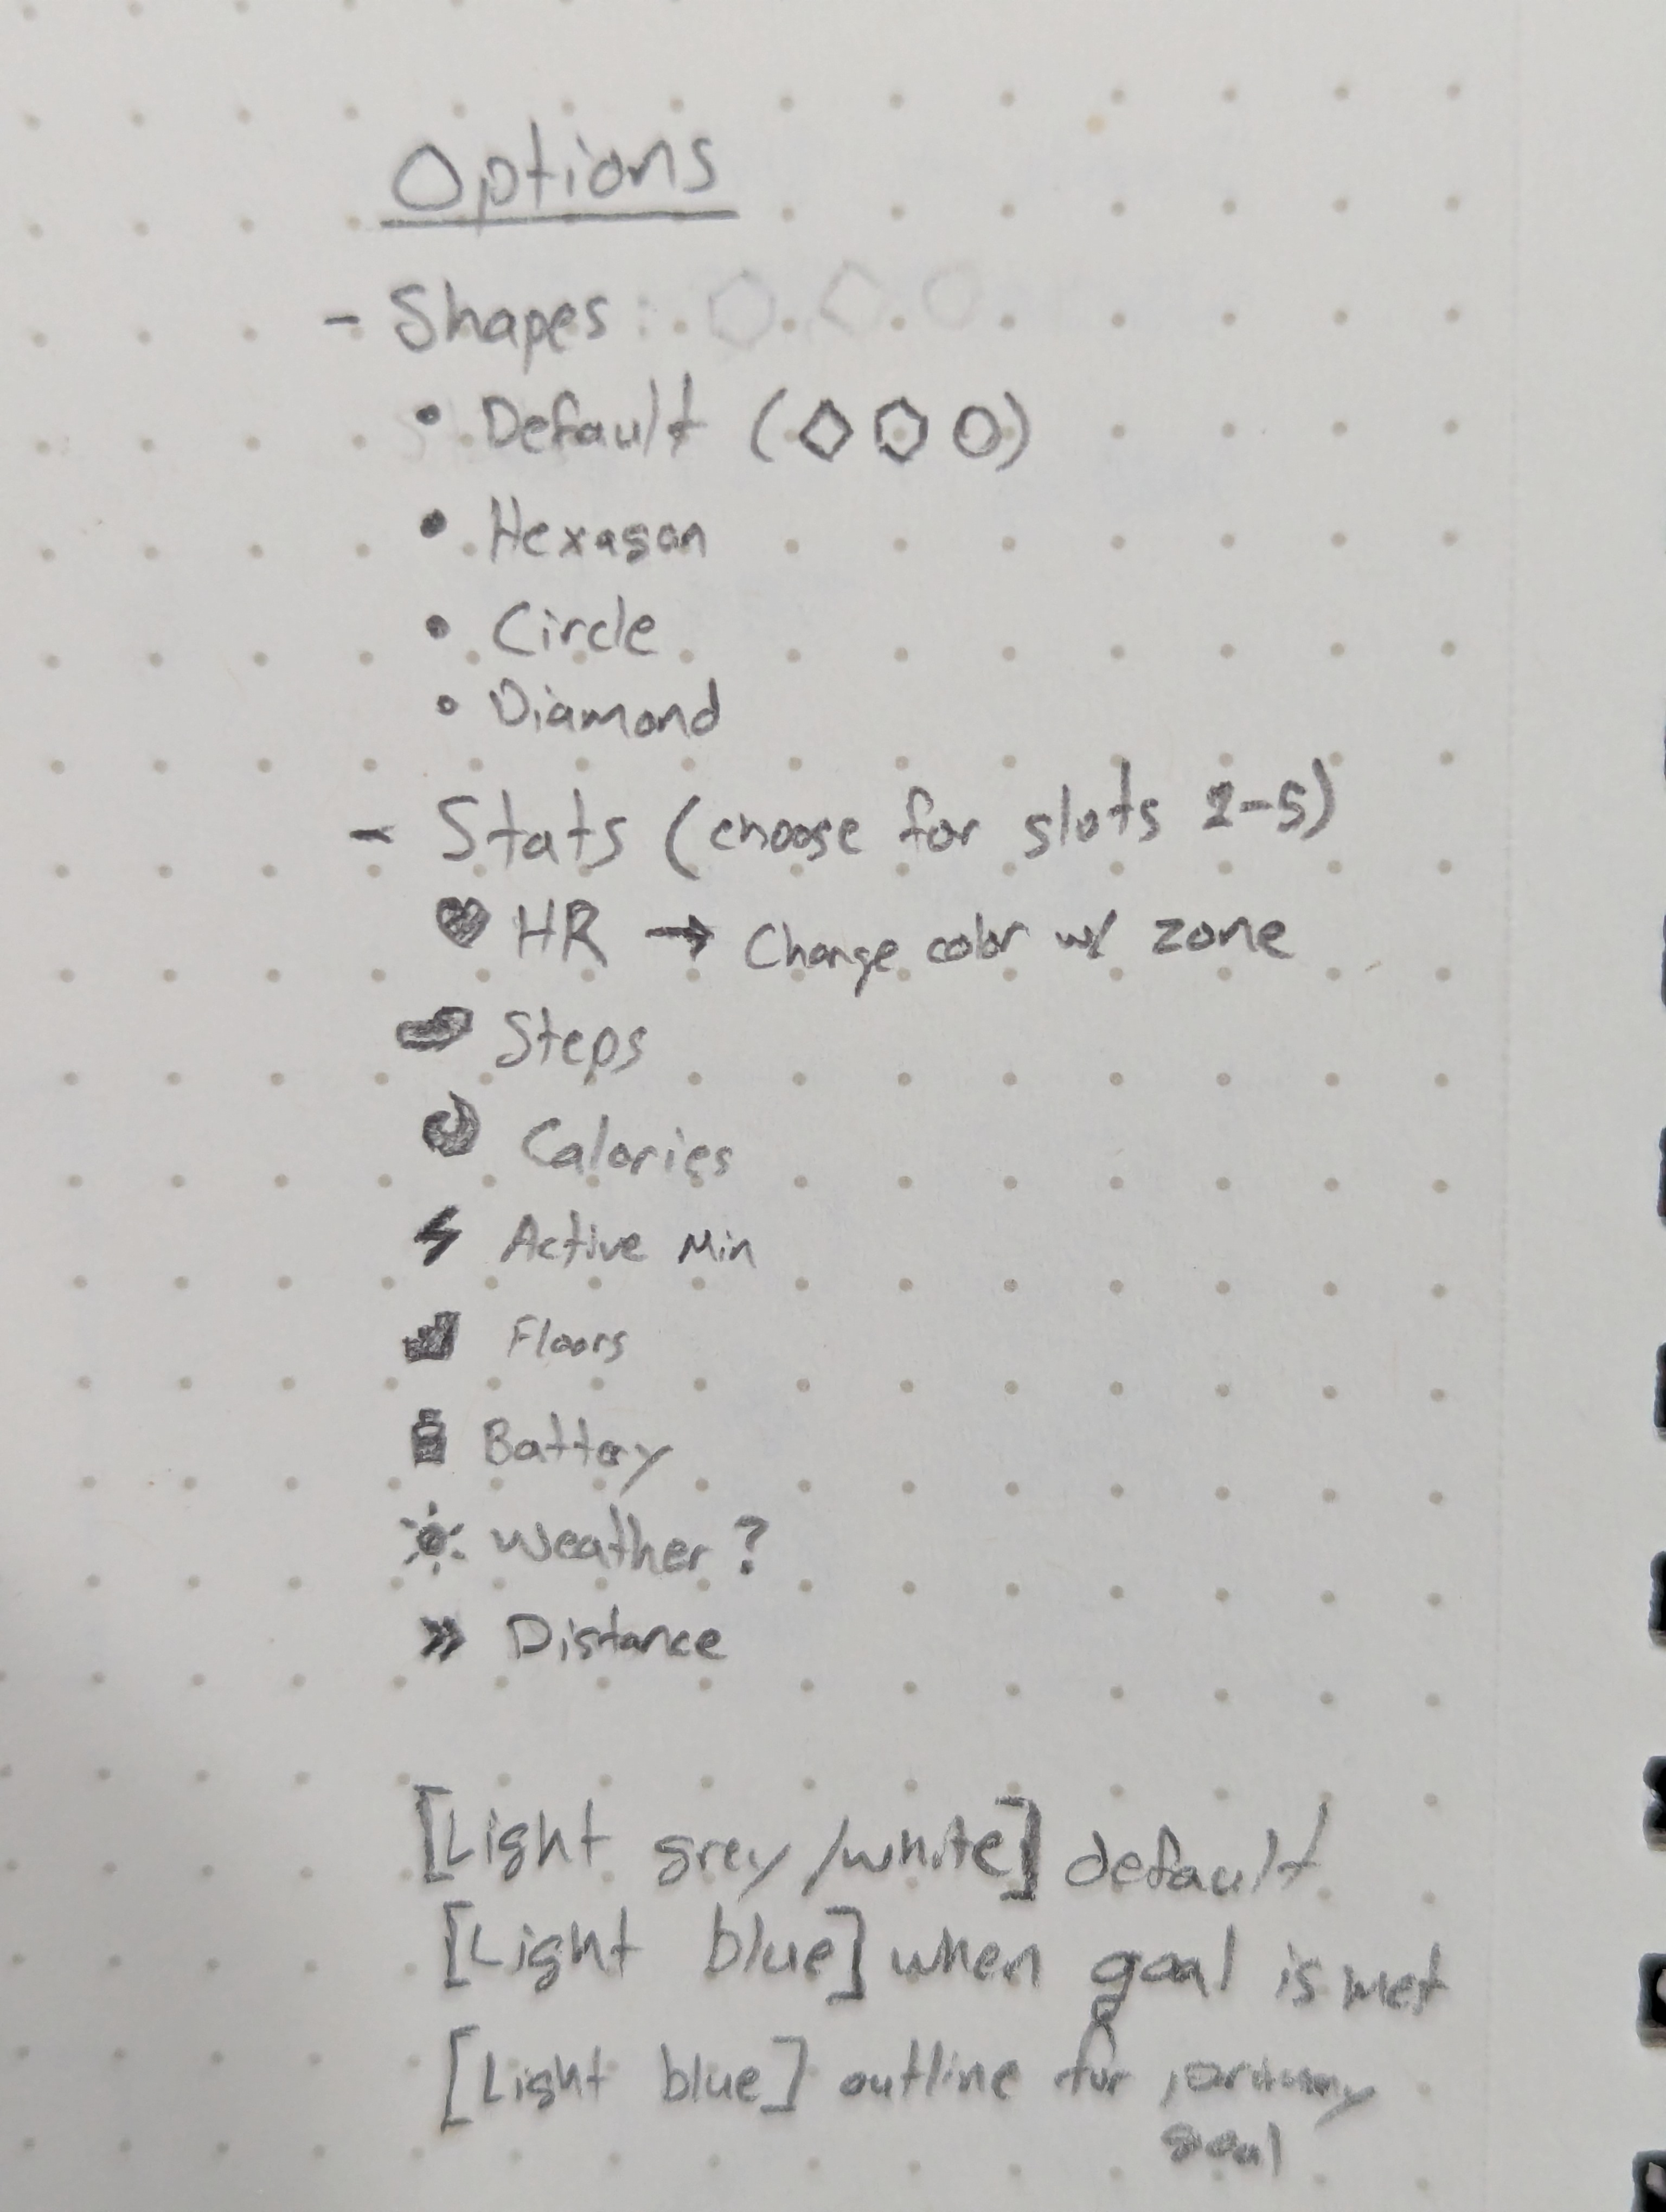 Options
- Shapes:
• Default (◇⬡○)
• Hexagon
• Circle
• Diamond
- Stats (choose for slots 2-5)
♥ HR → Change color w/ zone
Steps
Calories
Active Min
Floors
Battery
Weather?
» Distance
[Light grey/white] default
[Light blue] when goal is met
[Light blue] outline for primary
goal